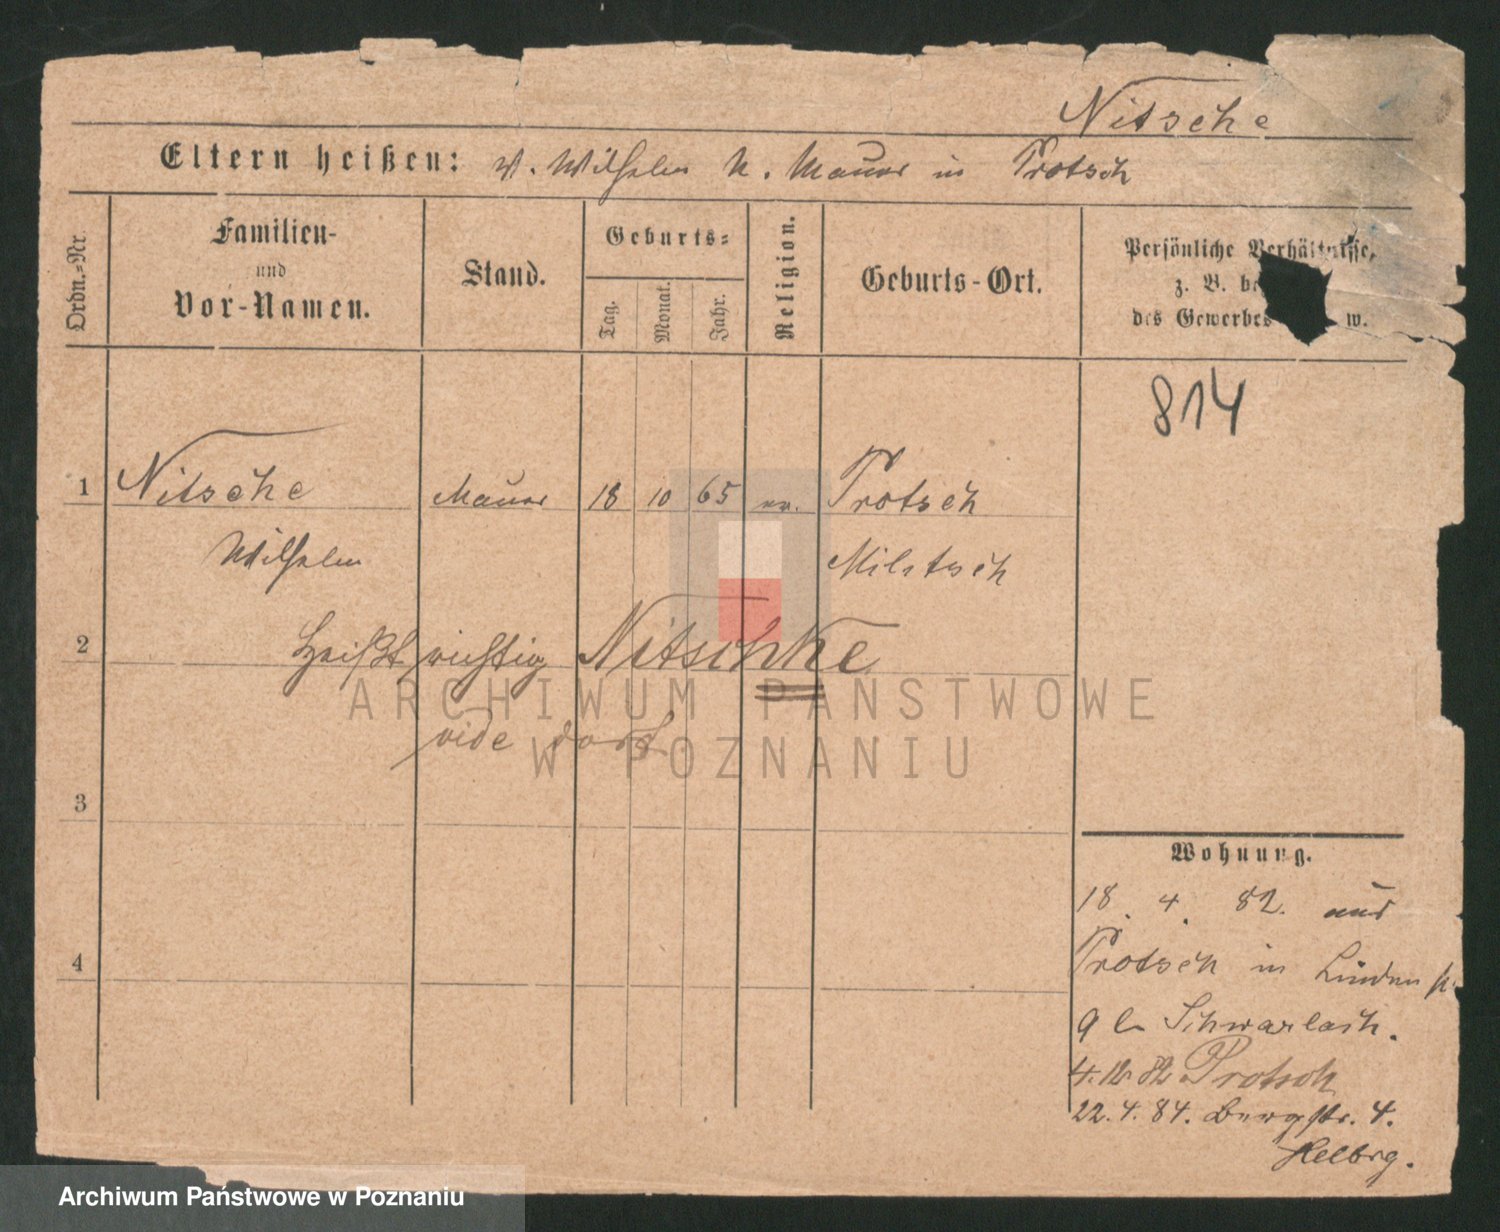 Nitsche
Eltern heißen: V. Wilhelm N. Maurer in Trotsch
Ordn.=Nr.
Familien-
und
Vor-Namen.
Stand.
Geburts=
Tag.
Monat.
Jahr.
Religion.
Geburts-Ort.
Persönliche Verhältnisse,
z. B.
des Gewerbes w.
814
1 Nitsche Maurer 18 10 65 ev. Trotsch
Wilhelm Militsch
2 heißt richtig Nitschke
vide dort
3
4
Wohnung.
18. 4. 82. aus
Trotsch in Linden str
9 b Schwarlach.
4.12 82 Trotsch
22.4.84. Bergstr. 4.
Helbrg.
ARCHIWUM PAŃSTWOWE
W POZNANIU
Archiwum Państwowe w Poznaniu